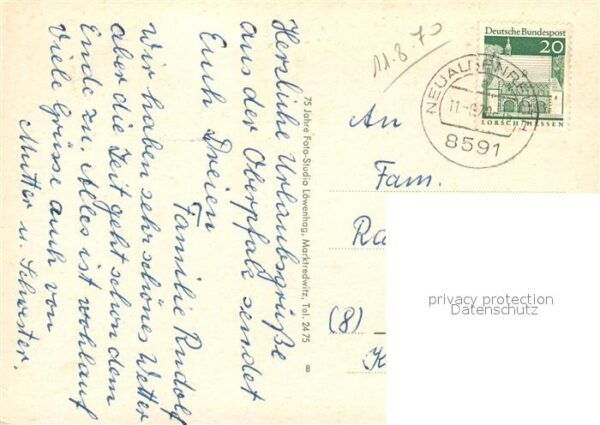 Herzliche Urlaubsgrüße
aus der Oberpfalz sendet
Euch Dreien
Familie Rudolf
Wir haben sehr schönes Wetter
aber die Zeit geht schon dem
Ende zu. Alles ist wohlauf
Viele Grüsse auch von
Mutter u. Schwester.
75 Jahre Foto-Studio Löwenhag, Marktredwitz, Tel. 2475
8
11.8.70
Deutsche Bundespost
20
LORSCH/HESSEN
8591
An
Fam.
(8)
privacy protection
Datenschutz